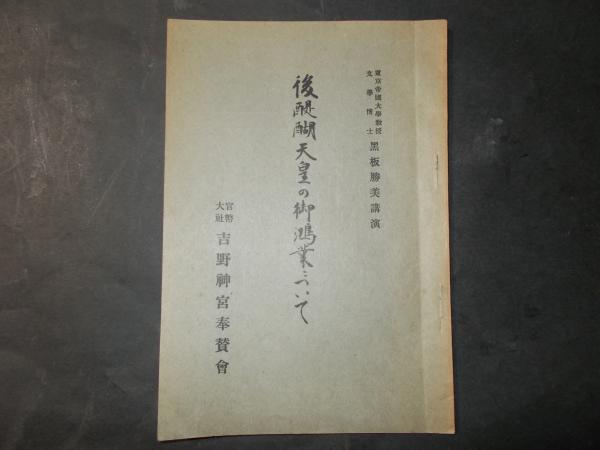 東京帝國大學教授
文學博士
黑板勝美講演
後醍醐天皇の御鴻業について
官幣
大社
吉野神宮奉賛會